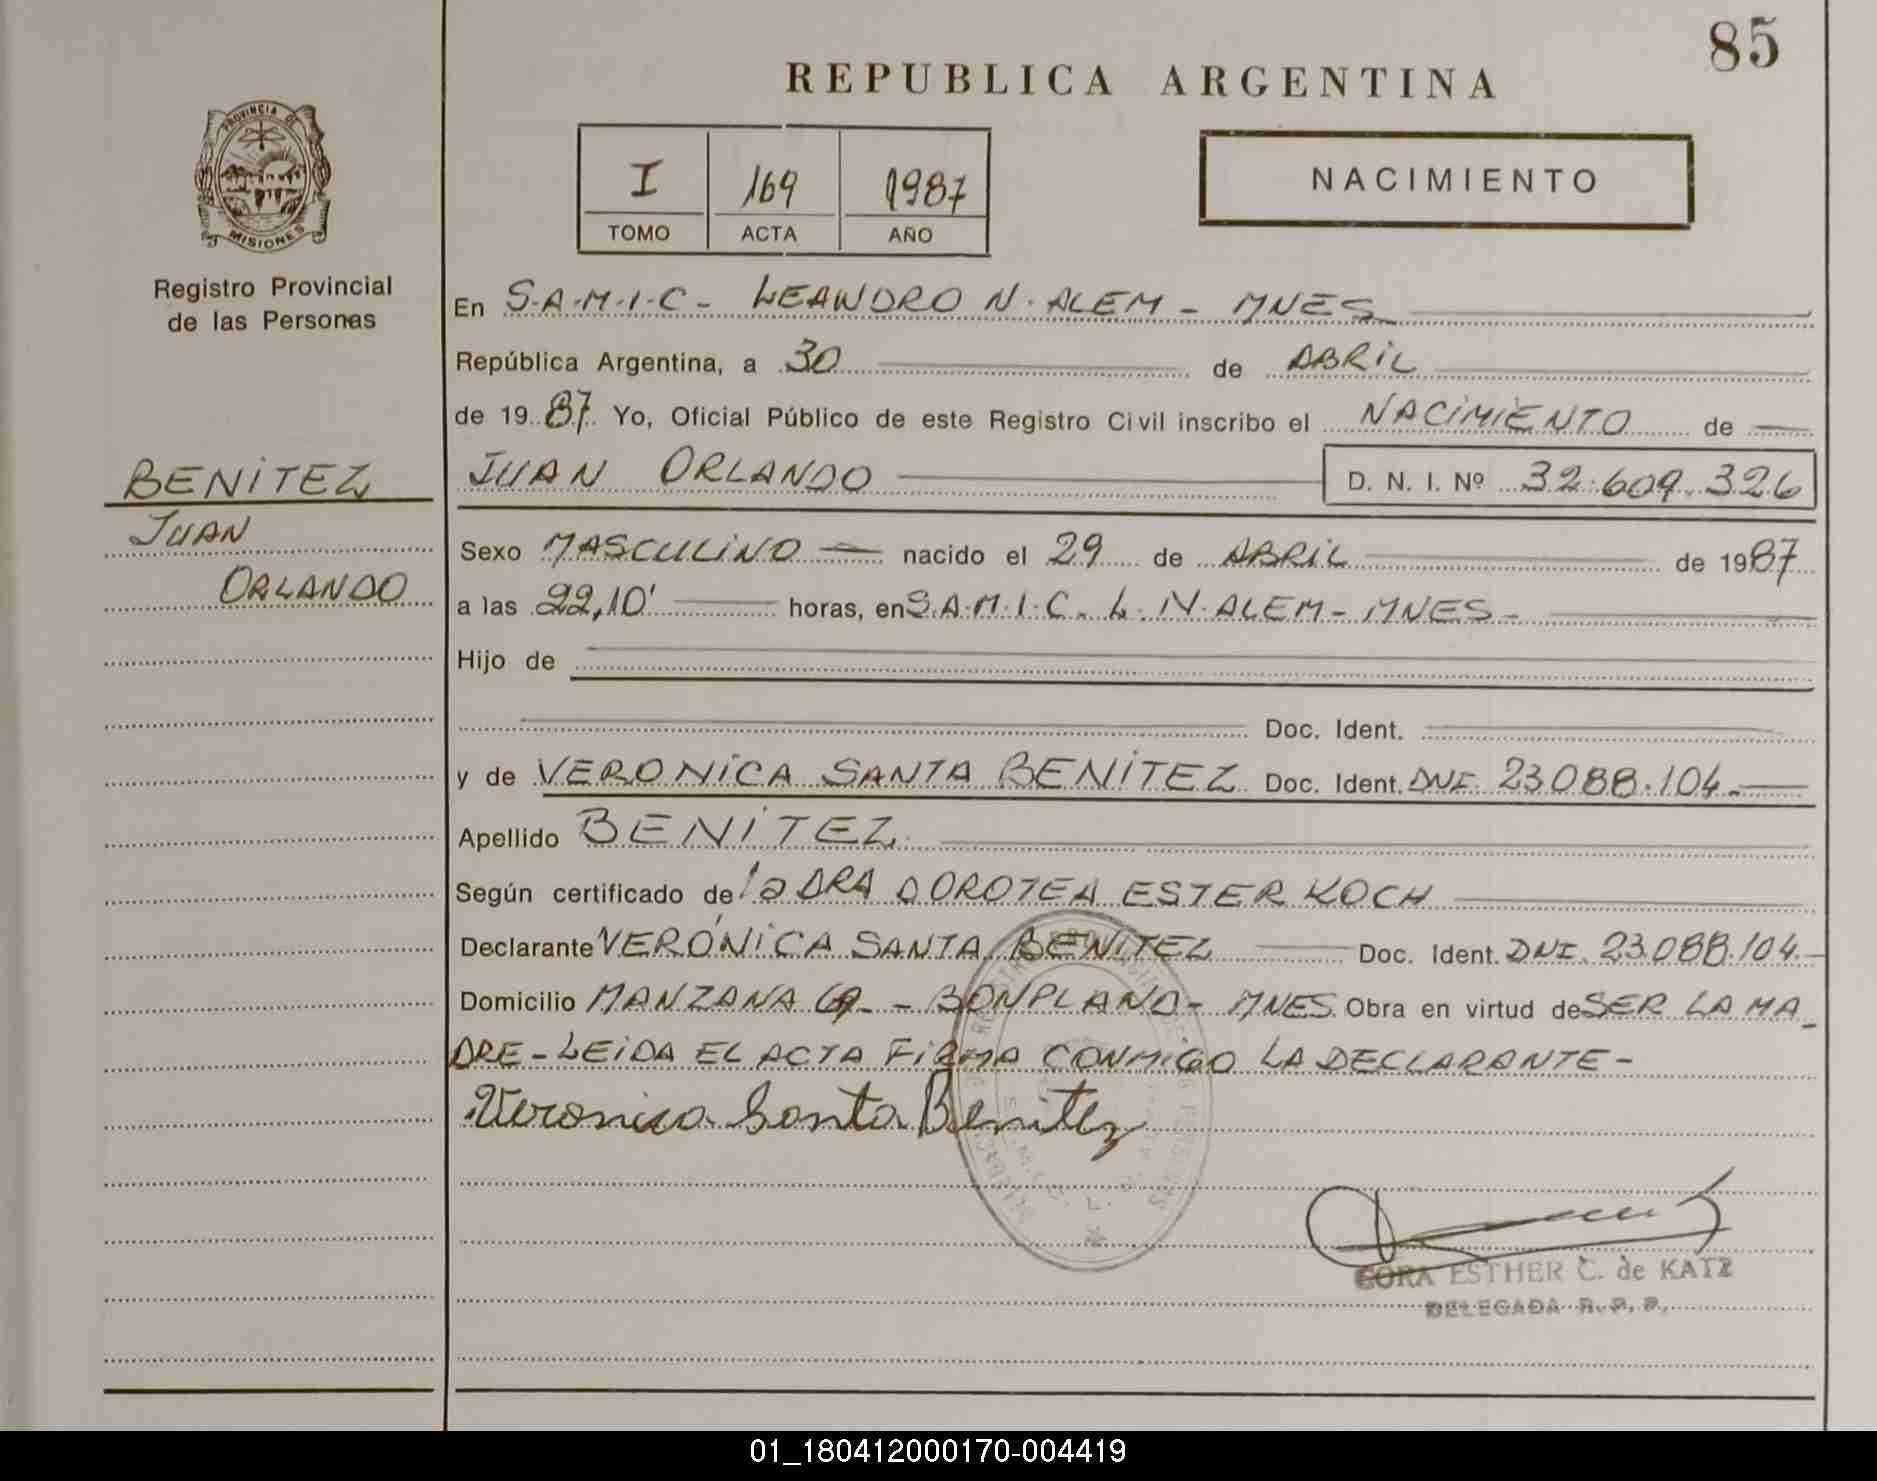 85
REPUBLICA ARGENTINA
PROVINCIA DE
MISIONES
Registro Provincial
de las Personas
I 169 1987
TOMO ACTA AÑO
NACIMIENTO
En S.A.M.I.C - LEANDRO N. ALEM - MNES
República Argentina, a 30 de ABRIL
de 1987 Yo, Oficial Público de este Registro Civil inscribo el NACIMIENTO de
BENITEZ
JUAN ORLANDO D. N. I. Nº 32.609.326
JUAN
ORLANDO
Sexo MASCULINO nacido el 29 de ABRIL de 1987
a las 22,10' horas, en S.A.M.I.C. L. N. ALEM - MNES -
Hijo de
Doc. Ident.
y de VERONICA SANTA BENITEZ Doc. Ident. DNI. 23.088.104.-
Apellido BENITEZ
Según certificado de la DRA DOROTEA ESTER KOCH
Declarante VERÓNICA SANTA BENITEZ Doc. Ident. DNI. 23.088.104.-
Domicilio MANZANA - BONPLAND - MNES. Obra en virtud de SER LA MA_
DRE - LEIDA EL ACTA FIRMA CONMIGO LA DECLARANTE -
Veronica Santa Benitez
CORA ESTHER C. de KATZ
DELEGADA R. P. P.
01_180412000170-004419